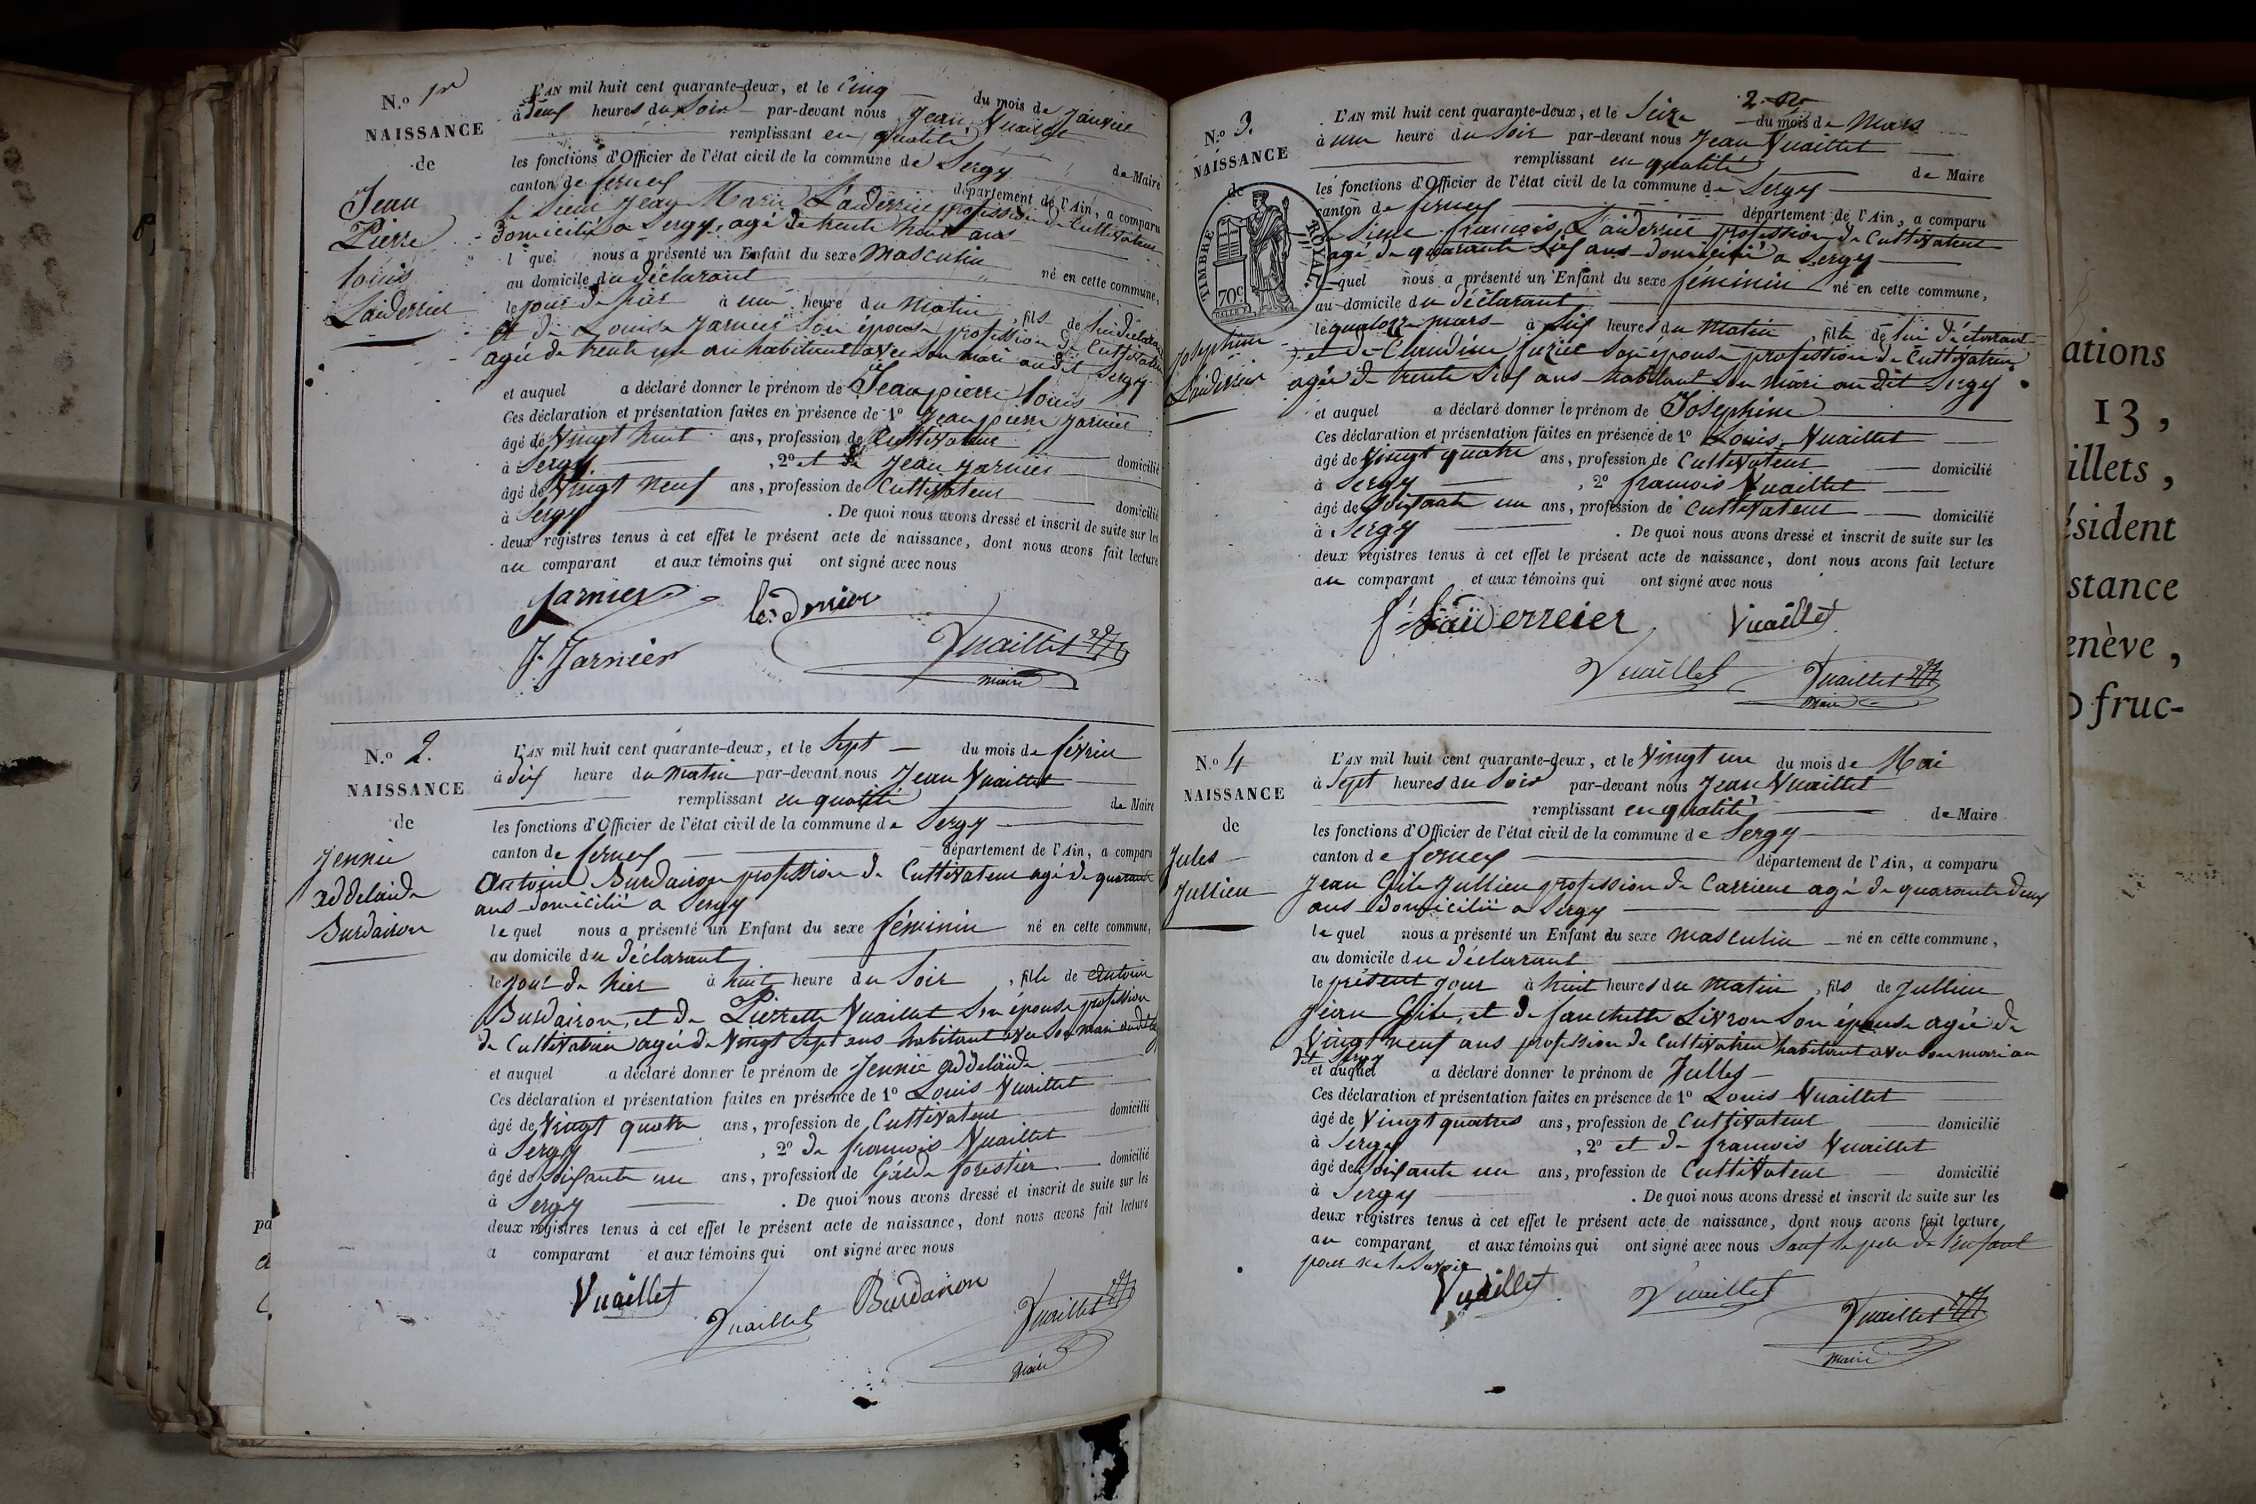 N.º 1er
NAISSANCE
de
Jean
Pierre
Louis
Laiderrier
L'AN mil huit cent quarante-deux, et le cinq du mois de Janvier
à deux heures du soir par-devant nous Jean Vuaillet
remplissant en qualité de Maire
les fonctions d'Officier de l'état civil de la commune de Sergy
canton de ferney département de l'Ain, a comparu
le sieur Jean Marie Laiderrier profession de Cultivateur
domicilié a Sergy, agé de trente huit ans
l quel nous a présenté un Enfant du sexe Masculin né en cette commune,
au domicile du déclarant
le jour de hier à une heure du matin, fils de lui déclarant
et de Louise Jarnier son épouse profession de Cultivatrice
agée de trente un an habitant avec son mari au dit Sergy
et auquel a déclaré donner le prénom de Jean pierre Louis
Ces déclaration et présentation faites en présence de 1º Jean pierre Jarnier
âgé de Vingt huit ans, profession de Cultivateur domicilié
à Sergy, 2º et de Jean Jarnier
âgé de Vingt neuf ans, profession de Cultivateur domicilié
à Sergy. De quoi nous avons dressé et inscrit de suite sur les
deux registres tenus à cet effet le présent acte de naissance, dont nous avons fait lecture
au comparant et aux témoins qui ont signé avec nous
Jarnier
J. Jarnier Vuaillet
maire
N.º 2.
NAISSANCE
de
Jennie
addelaide
Burdairon
L'AN mil huit cent quarante-deux, et le Sept du mois de février
à dix heure du matin par-devant nous Jean Vuaillet
remplissant en qualité de Maire
les fonctions d'Officier de l'état civil de la commune de Sergy
canton de ferney département de l'Ain, a comparu
Antoine Burdairon profession de Cultivateur agé de quarante
ans domicilié a Sergy
le quel nous a présenté un Enfant du sexe féminin né en cette commune,
au domicile du déclarant
le jour de hier à huit heure du Soir, fille de Antoine
Burdairon, et de Pierrette Vuaillet son épouse profession
de Cultivatrice agée de Vingt Sept ans habitant avec son mari
et auquel a déclaré donner le prénom de Jennie addelaïde
Ces déclaration et présentation faites en présence de 1º Louis Vuaillet
âgé de Vingt quatre ans, profession de Cultivateur domicilié
à Sergy, 2º de francois Vuaillet
âgé de Soixante un ans, profession de Garde forestier domicilié
à Sergy. De quoi nous avons dressé et inscrit de suite sur les
deux registres tenus à cet effet le présent acte de naissance, dont nous avons fait lecture
a comparant et aux témoins qui ont signé avec nous
Vuaillet Vuaillet Burdairon Vuaillet
Maire
N.º 3.
NAISSANCE
de
TIMBRE ROYAL
70c
Josephine
Laiderrier
L'AN mil huit cent quarante-deux, et le Seize du mois de Mars
à une heure du Soir par-devant nous Jean Vuaillet
remplissant en qualité de Maire
les fonctions d'Officier de l'état civil de la commune de Sergy
canton de ferney département de l'Ain, a comparu
le Sieur francois Laiderrier profession de Cultivateur
agé de quarante six ans domicilié a Sergy
l quel nous a présenté un Enfant du sexe féminin né en cette commune,
au domicile du déclarant
le quatorze mars à six heures du Matin, fille de lui déclarant
et de Claudine son épouse profession de Cultivatrice
agée de trente ans habitant son mari au dit Sergy
et auquel a déclaré donner le prénom de Josephine
Ces déclaration et présentation faites en présence de 1º Louis Vuaillet
âgé de Vingt quatre ans, profession de Cultivateur domicilié
à Sergy, 2º francois Vuaillet
âgé de Soixante un ans, profession de Cultivateur domicilié
à Sergy. De quoi nous avons dressé et inscrit de suite sur les
deux registres tenus à cet effet le présent acte de naissance, dont nous avons fait lecture
au comparant et aux témoins qui ont signé avec nous
Vuaillet
Vuaillet Vuaillet
Maire
N.º 4
NAISSANCE
de
Jules
Jullien
L'AN mil huit cent quarante-deux, et le Vingt un du mois de Mai
à Sept heures du Soir par-devant nous Jean Vuaillet
remplissant en qualité de Maire
les fonctions d'Officier de l'état civil de la commune de Sergy
canton de ferney département de l'Ain, a comparu
Jean Jullien profession de Carrieur agé de quarante deux
ans domicilié a Sergy
le quel nous a présenté un Enfant du sexe masculin né en cette commune,
au domicile du déclarant
le présent jour à huit heures du matin, fils de Jullien
Jean et de fanchette Livron son épouse agée de
Vingt neuf ans profession de Cultivatrice habitant avec son mari au
dit Sergy
et auquel a déclaré donner le prénom de Jules
Ces déclaration et présentation faites en présence de 1º Louis Vuaillet
âgé de Vingt quatres ans, profession de Cultivateur domicilié
à Sergy, 2º et de francois Vuaillet
âgé de Soixante un ans, profession de Cultivateur domicilié
à Sergy. De quoi nous avons dressé et inscrit de suite sur les
deux registres tenus à cet effet le présent acte de naissance, dont nous avons fait lecture
au comparant et aux témoins qui ont signé avec nous Sauf le père de l'enfant
pour ne le savoir
Vuaillet Vuaillet Vuaillet
maire
ations
13,
illets,
ésident
stance
enève,
fruc-